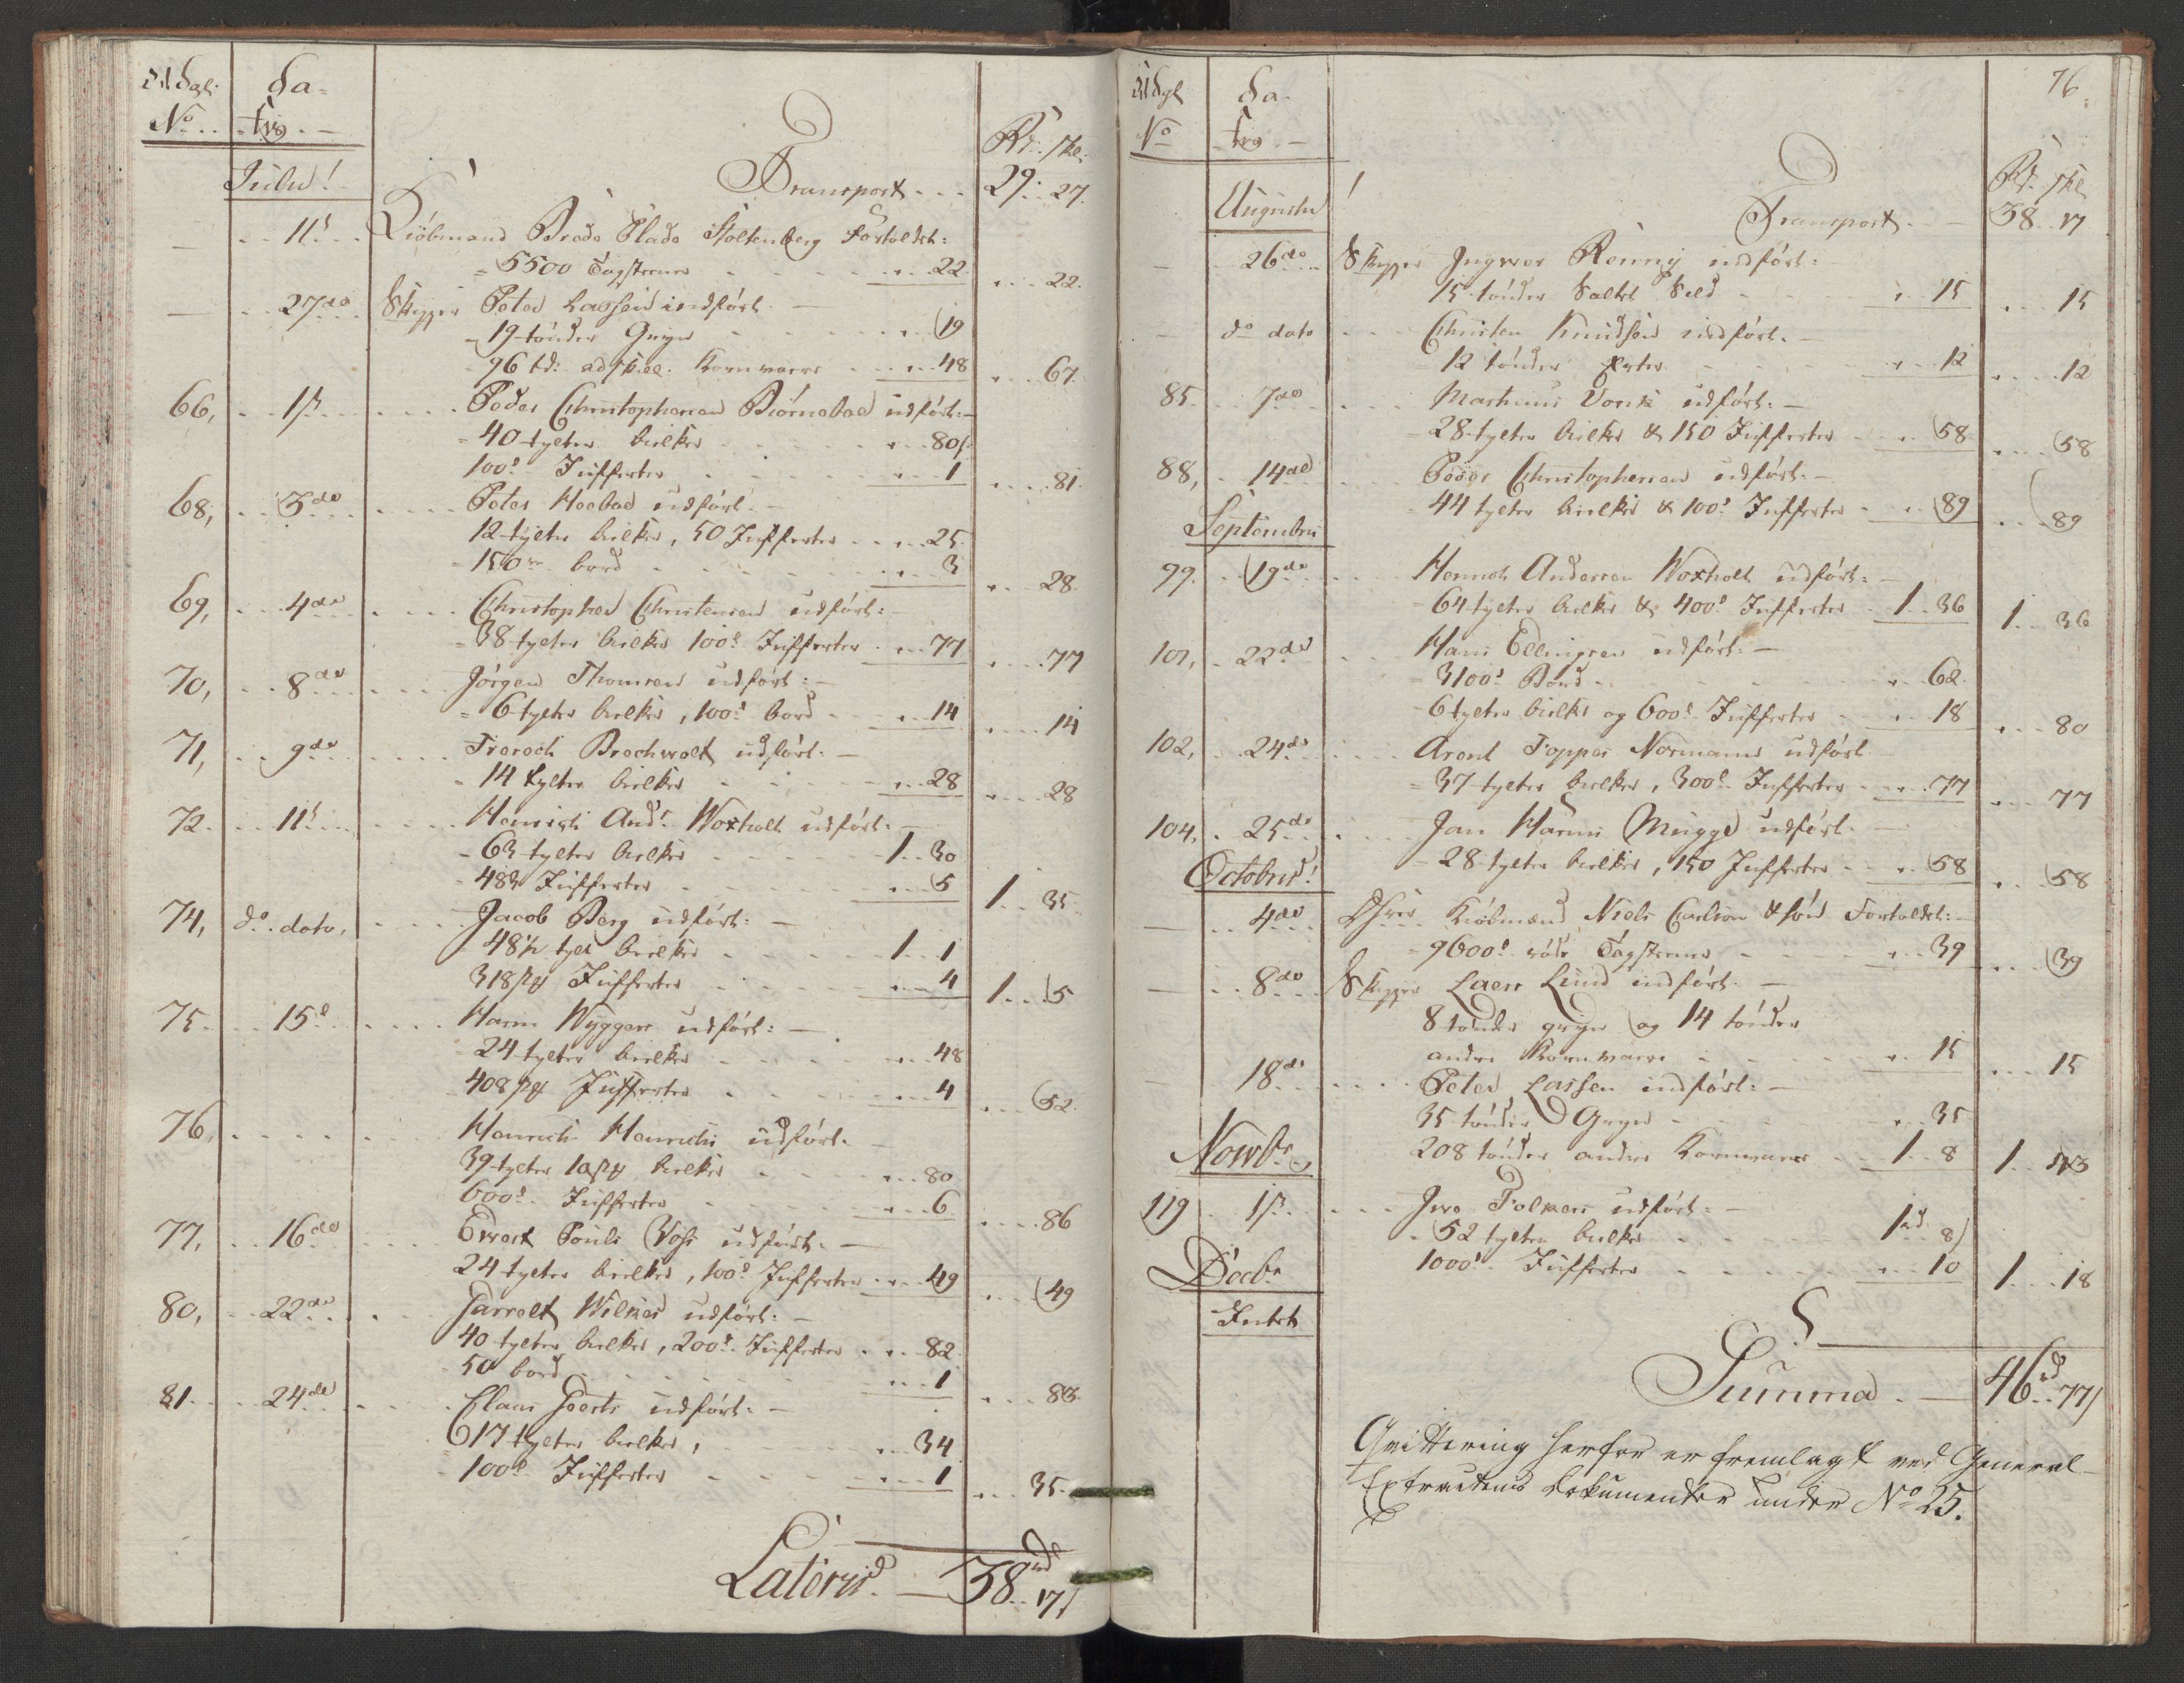 Udgl: da=
No .. = tro. —
Rd. skl:
Julii!
Transport - - - 29. 27.
— .. 11t .. Kiøbmand Brede Plade Stoltenberg Fortoldet:
= 5500 Tagsteene - - - - - „ .. 22. „ .. 22.
— .. 27de .. Skipper Peter Lassen indført —
= 19 tønder Gryn - - - - „ .. 19
96 td: adskill. Kornvarer - - „ .. 48 „ .. 67.
66, .. 1st .. Peder Christophersen Biørneboe udført: —
= 40 tylter bielker - - - „ .. 80/.
100de Jufferter - - - „ .. 1 „ .. 81.
68, .. 3de .. Peter udført. —
12 tylter bielker, 50 Jufferter - - „ .. 25.
= 150 bord - - - - „ .. 3 „ .. 28.
69, .. 4de .. Christopher Christensen udført:
= 38 tylter bielker 100de Jufferter - „ .. 77 „ .. 77
70, .. 8de .. Jørgen Thomsen udført: —
= 6 tylter bielker, 100de bord - „ .. 14 „ .. 14
71, .. 9de .. Frerech Brechwolt udført: —
= 14 tylter bielker - - - „ .. 28 „ .. 28
72. .. 11t .. Henrich Ands. Woxholt udført: —
= 63 tylter bielker - - - 1 .. 30
= 483 Jufferter - - - „ .. 5 1 .. 35.
74, do. dato, .. Jacob Berg udført: —
48½ tylt bielker - - - 1 .. 1
318 st Jufferter - - - „ .. 4 1 .. 5
75. .. 15d .. Harm Wyggers udført: —
24 tylter bielker - - - „ .. 48
408 st Jufferter - - - „ .. 4 „ .. 52.
76, .. Henrich Henrichs udført. —
39 tylter 10 st bielker - - - „ .. 80
600de Jufferter - - - „ .. 6 „ .. 86
77, .. 16de .. Ewert Pouls Voss udført. —
24 tylter bielker, 100de Jufferter - „ .. 49 „ .. 49
80, .. 22de .. Jarrelt Wilkes udført: —
40 tylter bielker, 200de Jufferter - „ .. 82.
50 bord - - - „ .. 1 „ .. 83.
81. .. 24de .. Claus Geerts udført: —
= 17 tylter bielker, - - - „ .. 34
= 100de Jufferter - - - „ .. 1 „ .. 35.
Lateris. — 38rd .. 17/
76.
Udgl da-
No tro —
Rd. skl
Augustii
Transport - — 38 .. 17
— 26de .. Skipper Ingwer Renny indført: —
15 tønder Saltet Sild - - - „ .. 15 „ .. 15
— do dato .. Christen Knudsen indført. —
12 tønder Erter - - - „ .. 12 „ .. 12
85. .. 7de .. Martinus Vonk udført: —
= 28 tylter bielker & 150 Jufferter - „ .. 58 „ .. 58
88, .. 14de .. Peder Christophersen udført. —
= 44 tylter bielker & 100de Jufferter - „ .. 89 „ .. 89
Septembris
99. .. 19de .. Henrich Andersen Woxholt udført: —
= 64 tylter bielker & 400de Jufferter - 1 .. 36 1 .. 36
101, .. 22de .. Hans Ellingsen udført: —
= 3100de Bord - - - „ .. 62.
= 6 tylter bielker og 600de Jufferter - „ .. 18 „ .. 80
102, .. 24de .. Arent Topper Normanns udført
= 37 tylter bielker, 300de Jufferter - „ .. 77 „ .. 77
104, .. 25de .. Jan Harms Mugge udført. —
= 28 tylter bielker, 150 Jufferter - „ .. 58 „ .. 58
Octobris!
— .. 4de .. Dhrr. Kiøbmænd Niels Carlsen & søn Fortoldet: —
= 9600de røde Tagsteene - - - „ .. 39 „ .. 39
— .. 8de .. Skipper Laers Lund indført. —
8 tønder gryn og 14 tønder
andre Kornvarer - - - „ .. 15 „ .. 15
— 18de .. Peter Lassen indført: —
35 tønder Gryn - - - „ .. 35
208 tønder andre Kornvarer - 1 .. 8 1 .. 43
Novbr.
119 .. 1st .. Iwe Folkers udført: —
= 52 tylter bielker - - - 1rd .. 8/
1000de Jufferter - - - „ .. 10 1 .. 18
Decbr
Intet
Summa. — 46rd .. 77/
Qvittering herfor er fremlagt ved General-
Extractens Dokumenter under No 25.